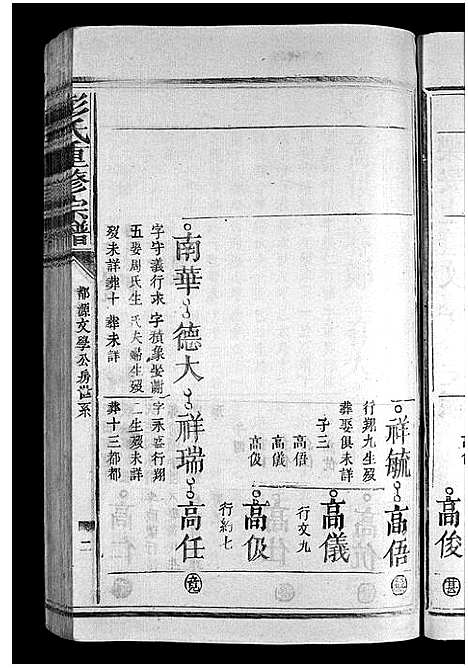 高俊
祥毓 高俉
行翔九生殁
葬娶俱未詳
子三
高俉
高儀
高伋
高儀
行文九
高伋
行約七
南華 德大 祥瑞 高任
字守義行求
五娶周氏生
殁未詳葬十
字積象娶謝
氏夫婦生殁
葬未詳
字永喜行翔
二生殁未詳
葬十三都都
彭氏重修宗譜
都源文學公房世系
二